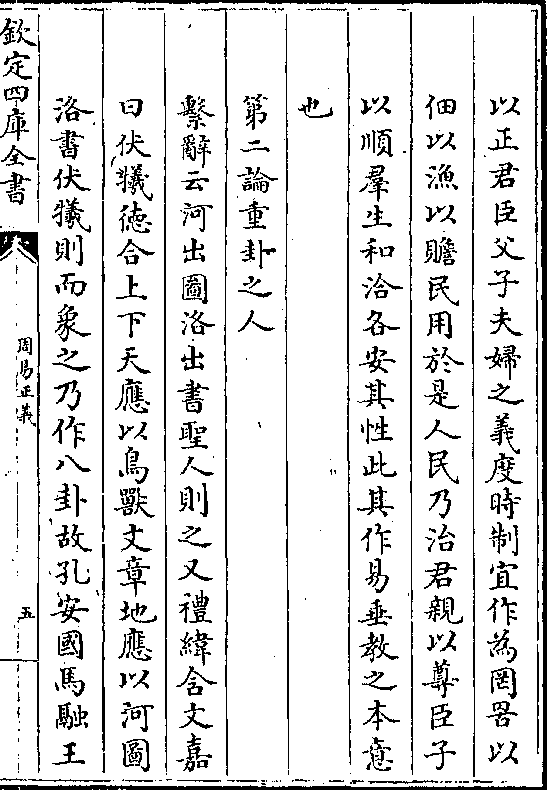 以正君臣父子夫婦之義度時制宜作為罔罟以
佃以漁以贍民用於是人民乃治君親以尊臣子
以順羣生和洽各安其性此其作易垂教之本意
也
第二論重卦之人
繫辭云河出圖洛出書聖人則之又禮緯含文嘉
曰伏犧德合上下天應以鳥獸文章地應以河圖
洛書伏犧則而象之乃作八卦故孔安國馬融王
欽定四庫全書
周易正義
五